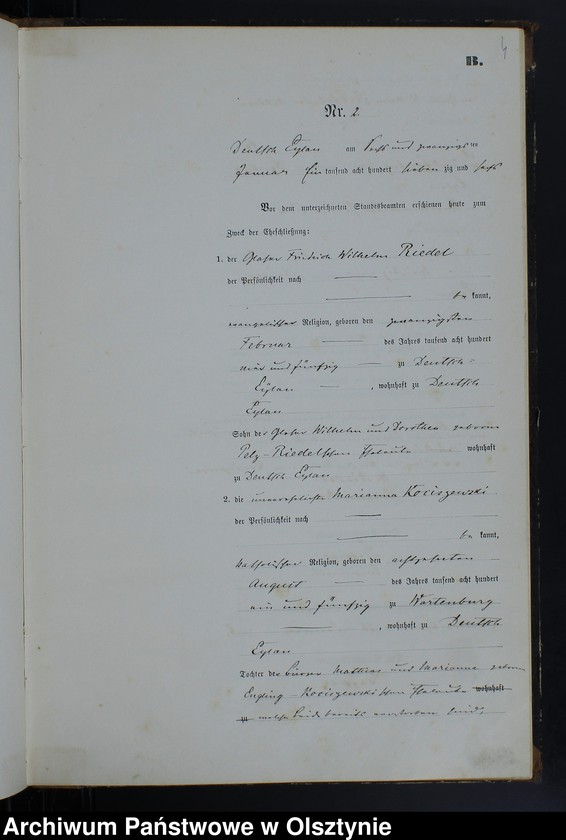 4
B.
Nr. 2
Deutsch Eylau am sechs und zwanzigsten
Januar Ein tausend acht hundert sieben zig und sechs
Vor dem unterzeichneten Standesbeamten erschienen heute zum
Zweck der Eheschließung:
1. der Glaser Friedrich Wilhelm Riedel
der Persönlichkeit nach
be kannt,
evangelischer Religion, geboren den zwanzigsten
Februar des Jahres tausend acht hundert
und fünfzig zu Deutsch-
Eylau, wohnhaft zu Deutsch
Eylau
Sohn des Glaser Wilhelm und Dorothea geborene
Pelz-Riedelschen Eheleute wohnhaft
zu Deutsch Eylau
2. die unverehelichte Marianna Kociszewski
der Persönlichkeit nach
be kannt,
katholischer Religion, geboren den achtzehnten
August des Jahres tausend acht hundert
ein und fünfzig zu Wartenburg
, wohnhaft zu Deutsch
Eylau
Tochter der Bürger Mathias und Marianna geborene
Kociszewski schen Eheleute wohnhaft
zu welche beide bereits verstorben sind,
Archiwum Państwowe w Olsztynie